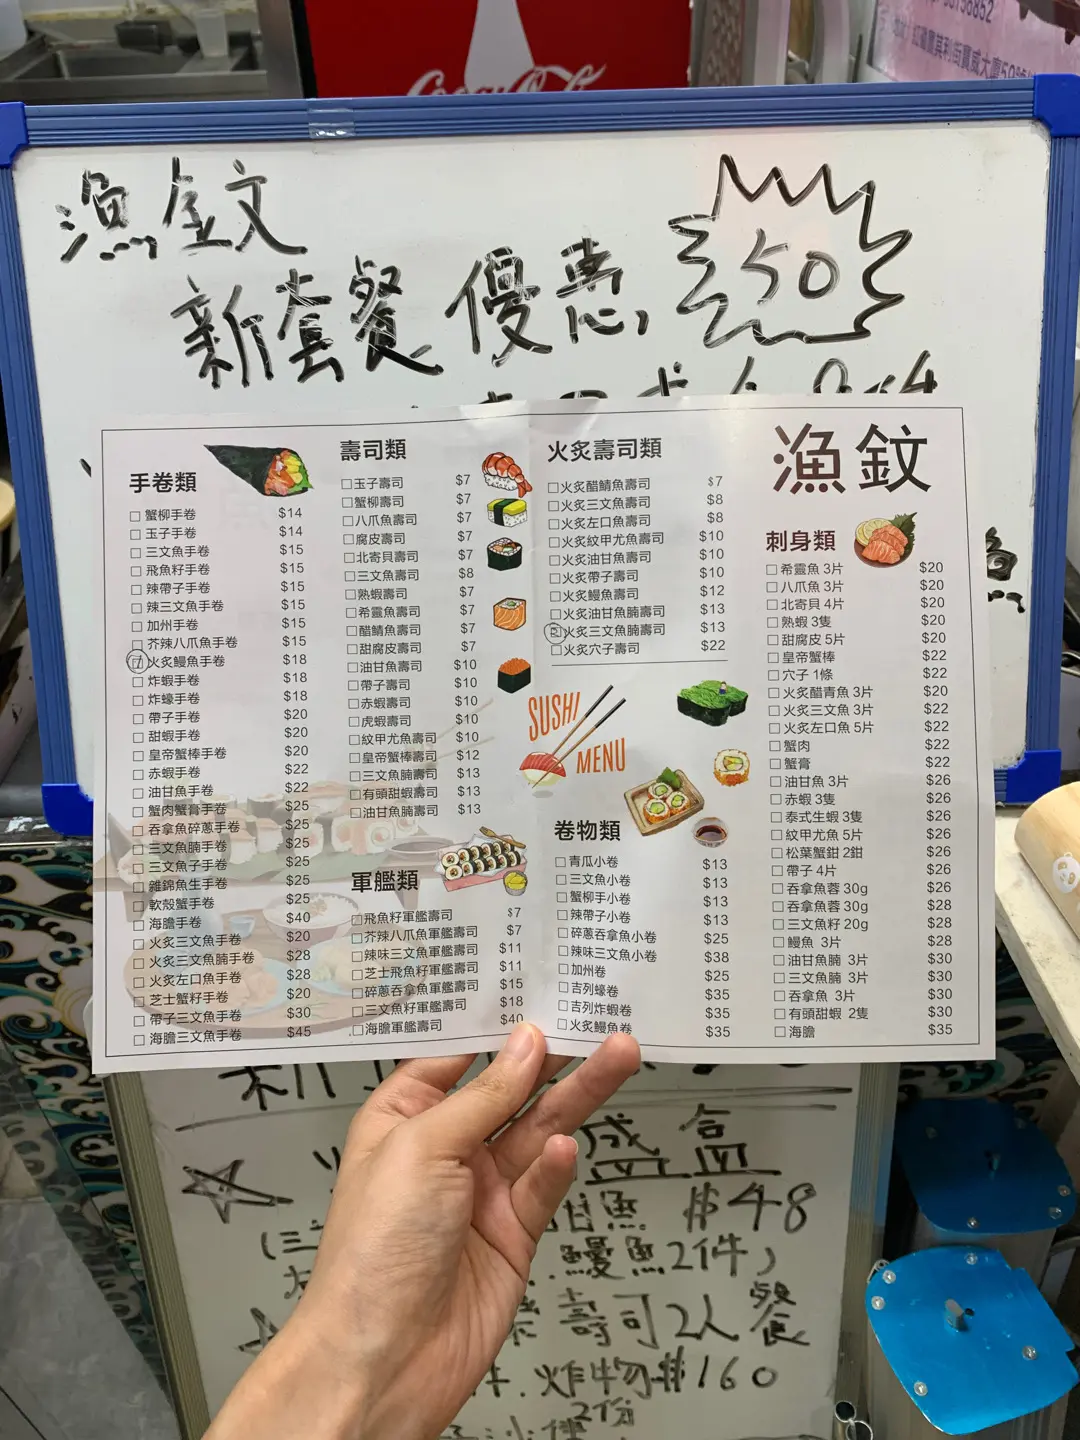 58156852
紅磡寶其利街寶威大廈
Coca-Cola
漁鈫
新套餐優惠
50
漁鈫
手卷類
蟹柳手卷 $14
玉子手卷 $14
三文魚手卷 $15
飛魚籽手卷 $15
辣帶子手卷 $15
辣三文魚手卷 $15
加州手卷 $15
芥辣八爪魚手卷 $15
火炙鰻魚手卷 $18
炸蝦手卷 $18
炸蠔手卷 $18
帶子手卷 $20
甜蝦手卷 $20
皇帝蟹棒手卷 $20
赤蝦手卷 $22
油甘魚手卷 $22
蟹肉蟹膏手卷 $25
吞拿魚碎蔥手卷 $25
三文魚腩手卷 $25
三文魚子手卷 $25
雜錦魚生手卷 $25
軟殼蟹手卷 $25
海膽手卷 $40
火炙三文魚手卷 $20
火炙三文魚腩手卷 $28
火炙左口魚手卷 $28
芝士蟹籽手卷 $20
帶子三文魚手卷 $30
海膽三文魚手卷 $45
壽司類
玉子壽司 $7
蟹柳壽司 $7
八爪魚壽司 $7
腐皮壽司 $7
北寄貝壽司 $7
三文魚壽司 $8
熟蝦壽司 $7
希靈魚壽司 $7
醋鯖魚壽司 $7
甜腐皮壽司 $7
油甘魚壽司 $10
帶子壽司 $10
赤蝦壽司 $10
虎蝦壽司 $10
紋甲尤魚壽司 $10
皇帝蟹棒壽司 $12
三文魚腩壽司 $13
有頭甜蝦壽司 $13
油甘魚腩壽司 $13
軍艦類
飛魚籽軍艦壽司 $7
芥辣八爪魚軍艦壽司 $7
辣味三文魚軍艦壽司 $11
芝士飛魚籽軍艦壽司 $11
碎蔥吞拿魚軍艦壽司 $15
三文魚籽軍艦壽司 $18
海膽軍艦壽司 $40
火炙壽司類
火炙醋鯖魚壽司 $7
火炙三文魚壽司 $8
火炙左口魚壽司 $8
火炙紋甲尤魚壽司 $10
火炙油甘魚壽司 $10
火炙帶子壽司 $10
火炙鰻魚壽司 $12
火炙油甘魚腩壽司 $13
火炙三文魚腩壽司 $13
火炙穴子壽司 $22
SUSHI
MENU
卷物類
青瓜小卷 $13
三文魚小卷 $13
蟹柳手小卷 $13
辣帶子小卷 $13
碎蔥吞拿魚小卷 $25
辣味三文魚小卷 $38
加州卷 $25
吉列蠔卷 $35
吉列炸蝦卷 $35
火炙鰻魚卷 $35
刺身類
希靈魚 3片 $20
八爪魚 3片 $20
北寄貝 4片 $20
熟蝦 3隻 $20
甜腐皮 5片 $20
皇帝蟹棒 $22
穴子 1條 $22
火炙醋青魚 3片 $20
火炙三文魚 3片 $22
火炙左口魚 5片 $22
蟹肉 $22
蟹膏 $22
油甘魚 3片 $26
赤蝦 3隻 $26
泰式生蝦 3隻 $26
紋甲尤魚 5片 $26
松葉蟹鉗 2鉗 $26
帶子 4片 $26
吞拿魚蓉 30g $26
吞拿魚蓉 30g $28
三文魚籽 20g $28
鰻魚 3片 $28
油甘魚腩 3片 $30
三文魚腩 3片 $30
吞拿魚 3片 $30
有頭甜蝦 2隻 $30
海膽 $35
盛盒
甘魚 $48
鰻魚2件)
壽司2人餐
炸物$160
2份